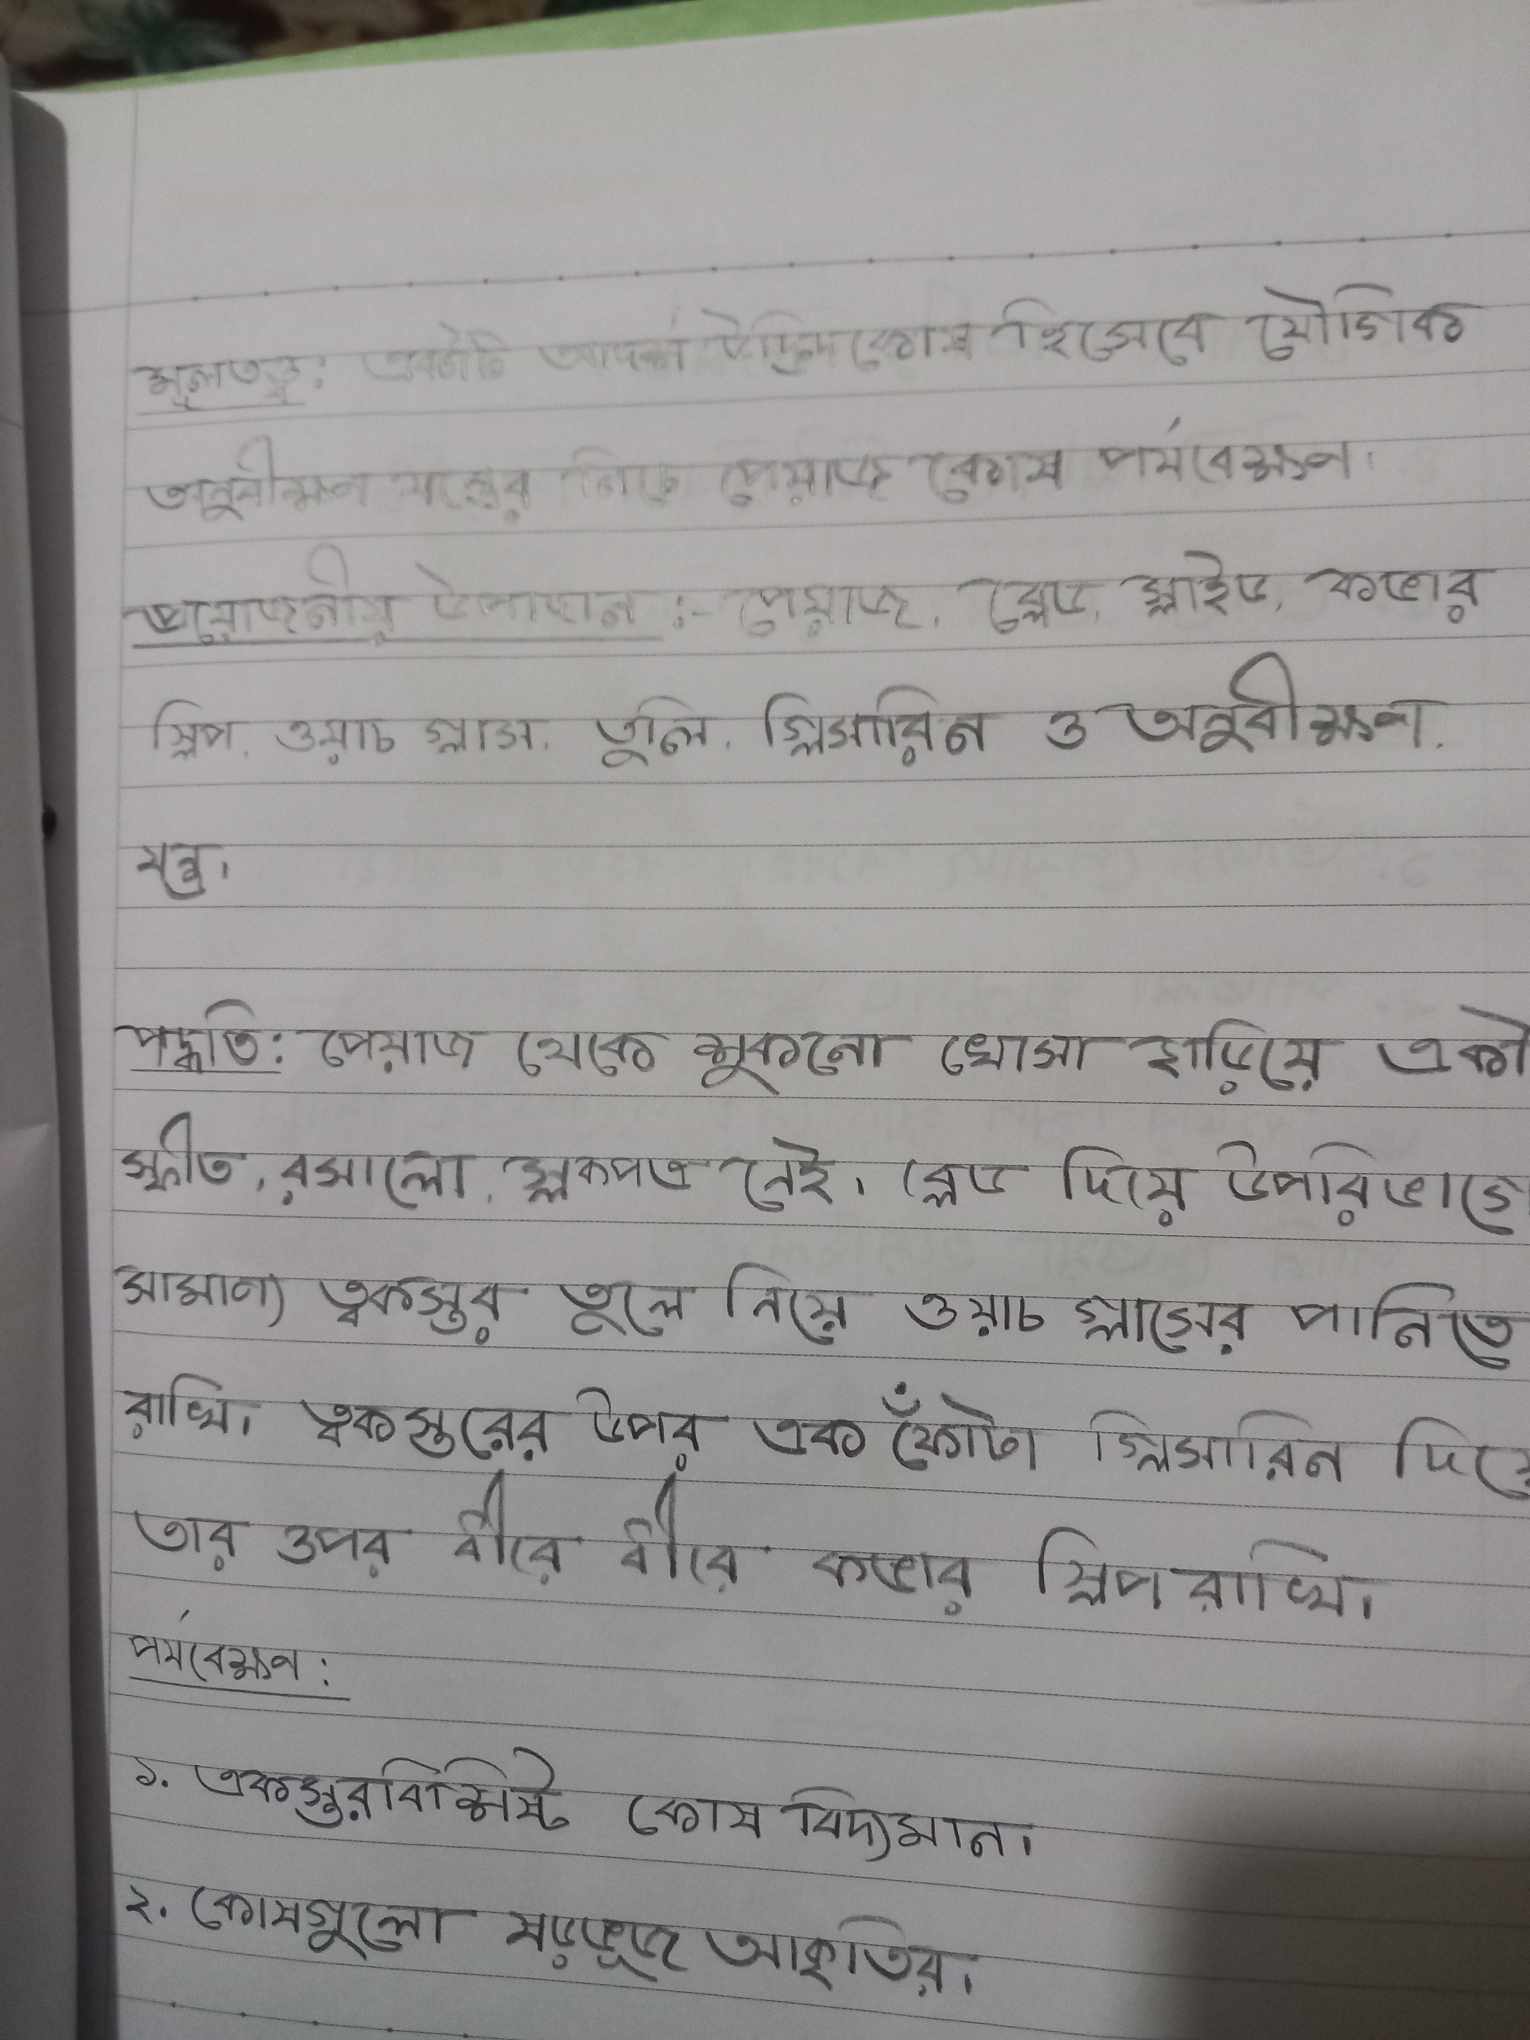 মূলতত্ত্ব: একটি আদর্শ উদ্ভিদকোষ হিসেবে যৌগিক
অনুবীক্ষন যন্ত্রের নিচে পেয়াজ কোষ পর্যবেক্ষন।
প্রয়োজনীয় উপাদান :- পেয়াজ, ব্লেড, স্লাইড, কভার
স্লিপ, ওয়াচ গ্লাস, তুলি, গ্লিসারিন ও অনুবীক্ষণ
যন্ত্র।
পদ্ধতি: পেয়াজ থেকে শুকনো খোসা ছাড়িয়ে একটা
স্ফীত, রসালো, শল্কপত্র নেই। ব্লেড দিয়ে উপরিভাগে
সামান্য ত্বকস্তর তুলে নিয়ে ওয়াচ গ্লাসের পানিতে
রাখি। ত্বকস্তরের উপর এক ফোঁটা গ্লিসারিন দিয়ে
তার ওপর ধীরে ধীরে কভার স্লিপ রাখি।
পর্যবেক্ষন :
১. একস্তরবিশিষ্ট কোষ বিদ্যমান।
২. কোষগুলো ষড়ভূজ আকৃতির।